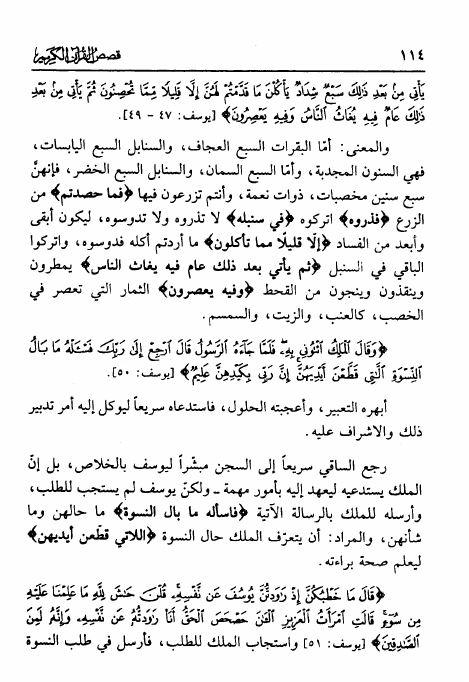 ١١٤ قصص القرآن الكريم
يَأْتِي مِنْ بَعْدِ ذَلِكَ سَبْعٌ شِدَادٌ يَأْكُلْنَ مَا قَدَّمْتُمْ لَهُنَّ إِلَّا قَلِيلًا مِمَّا تُحْصِنُونَ ثُمَّ يَأْتِي مِنْ بَعْدِ
ذَلِكَ عَامٌ فِيهِ يُغَاثُ النَّاسُ وَفِيهِ يَعْصِرُونَ﴾ [يوسف: ٤٧ - ٤٩].
والمعنى: أمّا البقرات السبع العجاف، والسنابل السبع اليابسات،
فهي السنون المجدبة، وأمّا السبع السمان، والسنابل السبع الخضر، فإنهنّ
سبع سنين مخصبات، ذوات نعمة، وأنتم تزرعون فيها ﴿فما حصدتم﴾ من
الزرع ﴿فذروه﴾ اتركوه ﴿في سنبله﴾ لا تذروه ولا تدوسوه، ليكون أبقى
وأبعد من الفساد ﴿إلّا قليلًا مما تأكلون﴾ ما أردتم أكله فدوسوه، واتركوا
الباقي في السنبل ﴿ثم يأتي بعد ذلك عام فيه يغاث الناس﴾ يمطرون
وينقذون وينجون من القحط ﴿وفيه يعصرون﴾ الثمار التي تعصر في
الخصب، كالعنب، والزيت، والسمسم.
﴿وَقَالَ الْمَلِكُ ائْتُونِي بِهِ فَلَمَّا جَاءَهُ الرَّسُولُ قَالَ ارْجِعْ إِلَى رَبِّكَ فَسْئَلْهُ مَا بَالُ
النِّسْوَةِ الَّتِي قَطَّعْنَ أَيْدِيَهُنَّ إِنَّ رَبِّي بِكَيْدِهِنَّ عَلِيمٌ﴾ [يوسف: ٥٠].
أبهره التعبير، وأعجبته الحلول، فاستدعاه سريعاً ليوكل إليه أمر تدبير
ذلك والاشراف عليه.
رجع الساقي سريعاً إلى السجن مبشّراً ليوسف بالخلاص، بل إنّ
الملك يستدعيه ليعهد إليه بأمور مهمة ـ ولكنّ يوسف لم يستجب للطلب،
وأرسله للملك بالرسالة الآتية ﴿فاسأله ما بال النسوة﴾ ما حالهن وما
شأنهن، والمراد: أن يتعرّف الملك حال النسوة ﴿اللاتي قطّعن أيديهن﴾
ليعلم صحة براءته.
﴿قَالَ مَا خَطْبُكُنَّ إِذْ رَاوَدْتُنَّ يُوسُفَ عَنْ نَفْسِهِ قُلْنَ حَاشَ لِلَّهِ مَا عَلِمْنَا عَلَيْهِ
مِنْ سُوءٍ قَالَتِ امْرَأَتُ الْعَزِيزِ الْآنَ حَصْحَصَ الْحَقُّ أَنَا رَاوَدْتُهُ عَنْ نَفْسِهِ وَإِنَّهُ لَمِنَ
الصَّادِقِينَ﴾ [يوسف: ٥١] واستجاب الملك للطلب، فأرسل في طلب النسوة